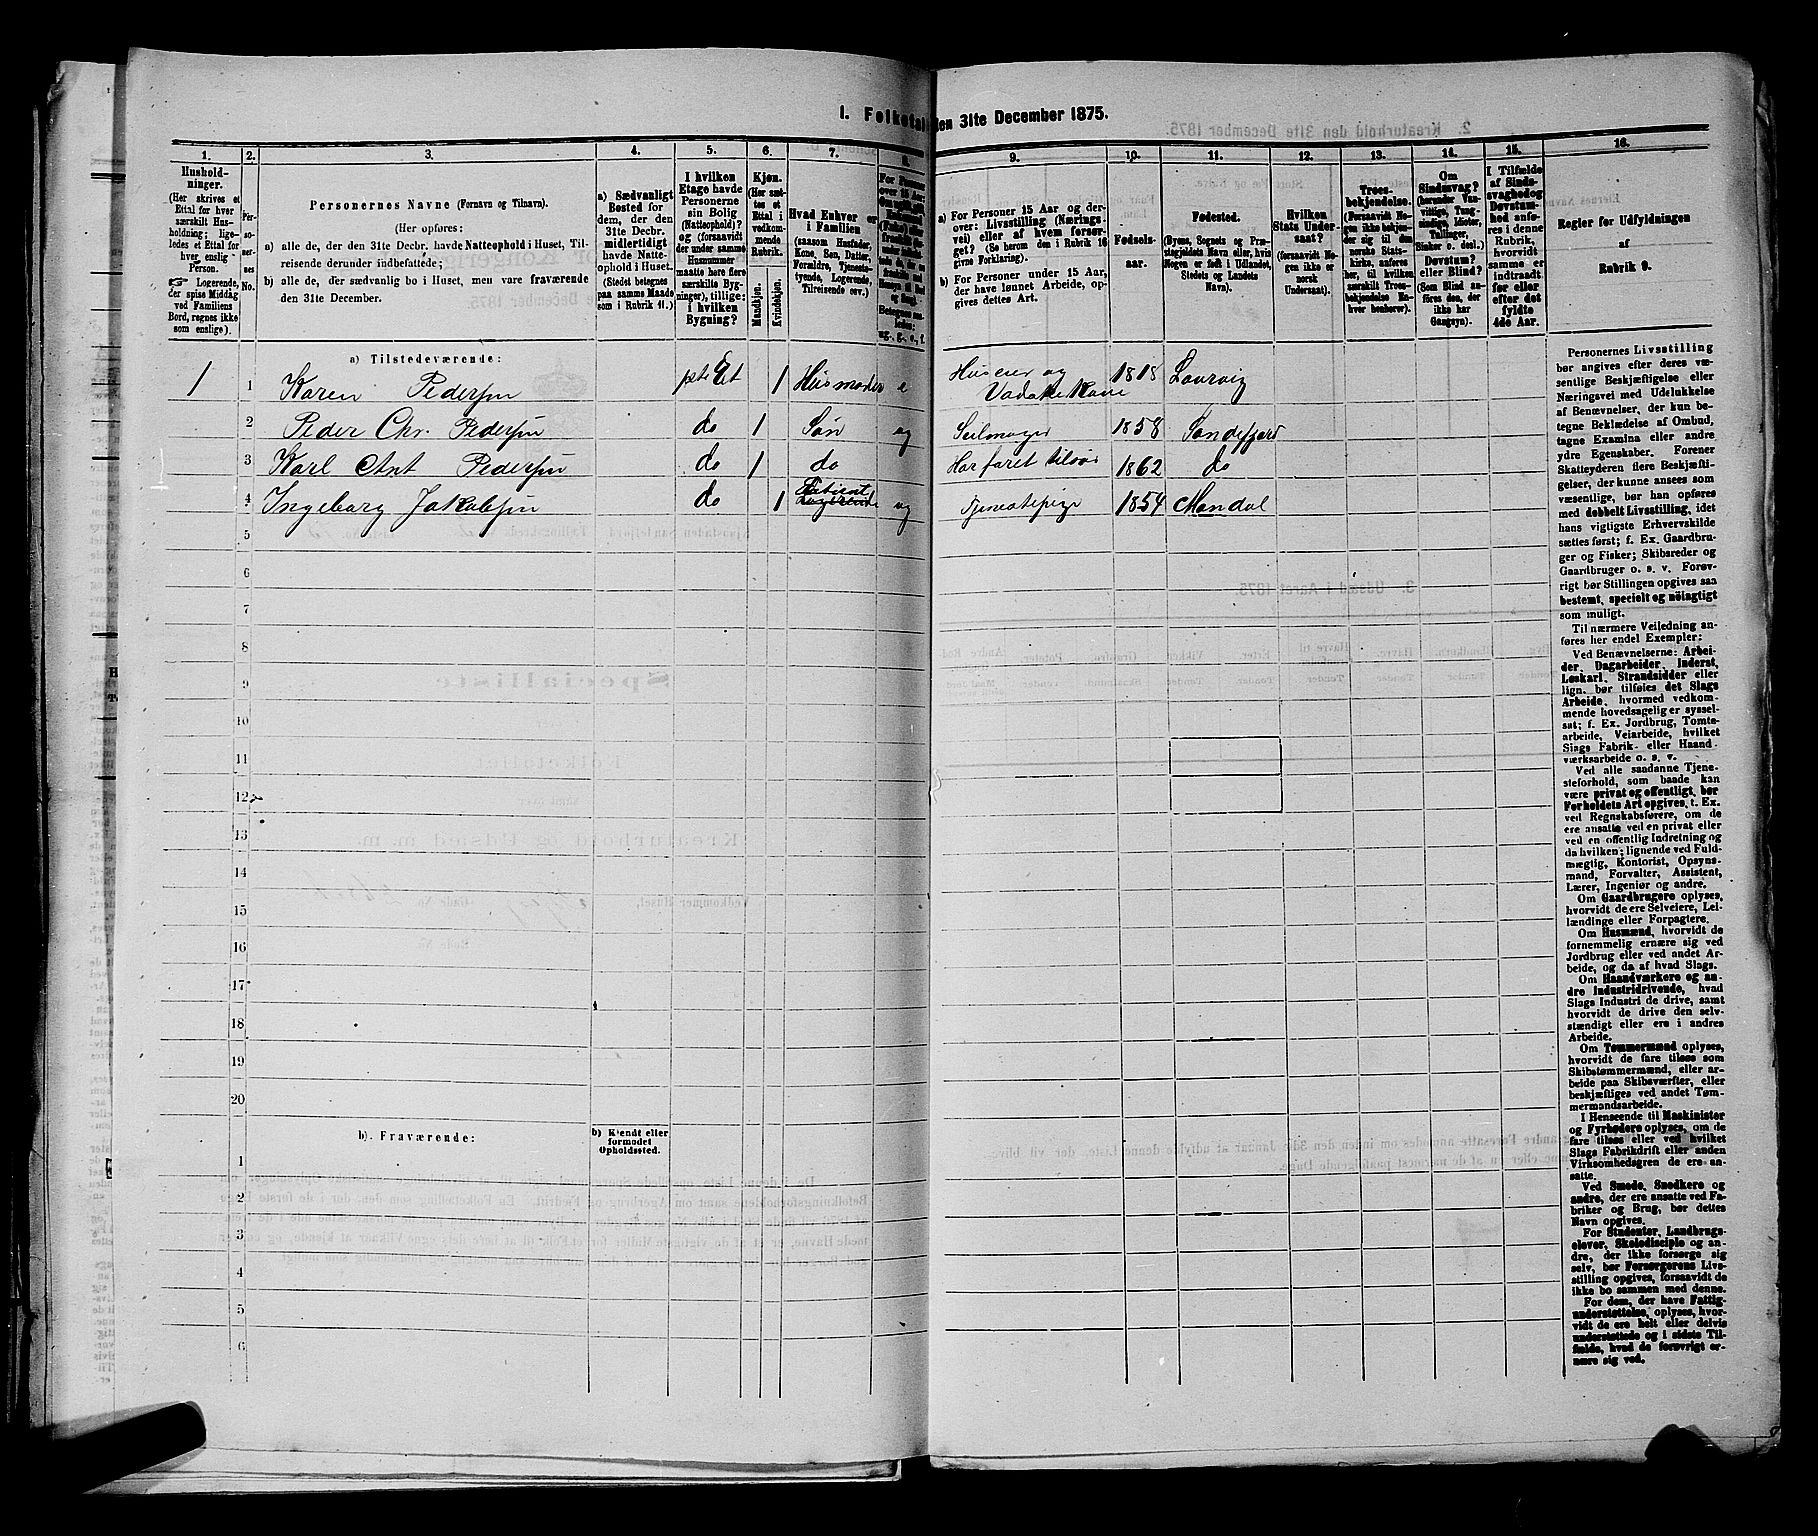 I. Folketal
den 31te December 1875.
1.
2.
3.
4.
5.
6.
7.
8.
9.
10.
11.
12.
13.
14.
15.
16.
Husholdninger.
(Her skrives et
Ettal for hver
særskilt Husholdning; ligeledes et Ettal for
hver enslig
Person.
Logerende,
der spise Middag
ved Familiens
Bord, regnes ikke
som enslige).
Personernes
No.
Personernes Navne (Fornavn og Tilnavn).
(Her opføres:
a) alle de, der den 31te Decbr. havde Natteophold i Huset, Tilreisende derunder indbefattede;
b) alle de, der sædvanlig bo i Huset, men vare fraværende
den 31te December.
a) Sædvanligt
Bosted for
dem, der den
31te Decbr.
midlertidigt
havde Natteophold i Huset.
(Stedet betegnes
paa samme Maade
som i Rubrik 11.)
I hvilken
Etage havde
Personerne
sin Bolig
(Natteophold)?
og (forsaavidt
der under samme
Husnummer
maatte høre flere
særskilte Bygninger), tillige:
i hvilken
Bygning?
Kjøn.
(Her sættes et
Ettal i
vedkommende
Rubrik.
Mandkjøn.
Kvindekjøn.
Hvad Enhver er
i Familien
(saasom Husfader,
Kone, Søn, Datter,
Forældre, Tjenestetyende, Logerende,
Tilreisende osv.)
a) For Personer 15 Aar og derover: Livsstilling (Næringsvei) eller af hvem forsørget? (Se herom den i Rubrik 16
givne Forklaring).
b) For Personer under 15 Aar,
der have lønnet Arbeide, opgives dettes Art.
Fødselsaar.
Fødested.
(Byens, Sognets og Præstegjeldets Navn eller, hvis
Nogen er født i Udlandet,
Stedets og Landets
Navn).
Hvilken
Stats Undersaat?
(forsaavidt Nogen ikke er
norsk
Undersaat).
Troesbekjendelse.
(Forsaavidt Nogen ikke bekjender sig til den
norske Statskirke, anføres
her, til hvilken
særskilt Troesbekjendelse Enhver henhører).
Om
Sindssvag?
Døvstum?
eller Blind?
(Som Blind anføres den, der
ikke har
Gangsyn).
I Tilfælde
af Sindssvaghed og
Døvstumhed anføres i denne
Rubrik,
hvorvidt
samme er
indtraadt
før eller
efter det
fyldte
4de Aar.
Regler for Udfyldningen
af
Rubrik 9.
a) Tilstedeværende:
1 1 Karen Pedersen 1 Husmoder e Huseier og 1818 Laurvig
2 Peder Chr. Pedersen do 1 Søn ug Seilmager 1858 Sandefjord
3 Karl Ant Pedersen do 1 do Har faret tilsøs 1862 do
4 Ingeborg Jakobsen do 1 Patient Logerende ug Tjenestepige 1854 Mandal
5
6
7
8
9
10
11
12
13
14
15
16
17
18
19
20
b). Fraværende:
b) Kjendt eller
formodet
Opholdssted.
1
2
3
4
5
6
Personernes Livsstilling
bør angives efter deres væsentlige Beskjæftigelse eller
Næringsvei med Udelukkelse
af Benævnelser, der kun betegne Beklædelse af Ombud,
tagne Examina eller andre
ydre Egenskaber. Forener
Skatteyderen flere Beskjæftigelser, der kunne ansees som
væsentlige, bør han opføres
med dobbelt Livsstilling, idet
hans vigtigste Erhvervskilde
sættes først; f. Ex. Gaardbruger og Fisker; Skibsreder og
Gaardbruger o. s. v. Forøvrigt bør Stillingen opgives saa
bestemt, specielt og nöiagtigt
som muligt.
Til nærmere Veiledning anføres her endel Exempler:
Ved Benævnelserne: Arbeider, Dagarbeider, Inderst,
Løskarl, Strandsidder eller
lign. bør tilføies det Slags
Arbeide, hvormed vedkommende hovedsagelig er sysselsat; f. Ex. Jordbrug, Tomtearbeide, Veiarbeide, hvilket
Slags Fabrik- eller Haandværksarbeide o. s. v.
Ved alle saadanne Tjenesteforhold, som baade kan
være privat og offentligt, bør
Forholdets Art opgives, t. Ex.
ved Regnskabsførere, om de
ere ansatte ved en privat eller
ved en offentlig Indretning og
da hvilken; lignende ved Fuldmægtig, Kontorist, Opsynsmand, Forvalter, Assistent,
Lærer, Ingeniør og andre.
Om Gaardbrugere oplyses,
hvorvidt de ere Selveiere, Leilændinge eller Forpagtere.
Om Husmænd, hvorvidt de
fornemmelig ernære sig ved
Jordbrug eller ved andet Arbeide, og da af hvad Slags.
Om Haandværkere og andre Industridrivende, hvad
Slags Industri de drive, samt
hvorvidt de drive den selvstændigt eller ere i andres
Arbeide.
Om Tømmermænd oplyses,
hvorvidt de fare tilsøs som
Skibstømmermænd, eller arbeide paa Skibsværfter, eller
beskjæftiges ved andet Tømmermandsarbeide.
I Henseende til Maskinister
og Fyrbødere oplyses, om de
fare tilsøs eller ved hvilket
Slags Fabrikdrift eller anden
Virksomhedsgren de ere ansatte.
Ved Smede, Snedkere og
andre, der ere ansatte ved Fabriker og Brug, bør dettes
Navn opgives.
For Studenter, Landbrugselever, Skoledisciple og andre, der ikke forsørge sig
selv, bør Forsørgerens Livsstilling opgives, forsaavidt de
ikke bo sammen med denne.
For dem, der have Fattigunderstøttelse, oplyses, hvorvidt de ere helt eller delvis
understøttede og i sidste Tilfælde, hvad de forøvrigt ernære sig ved.